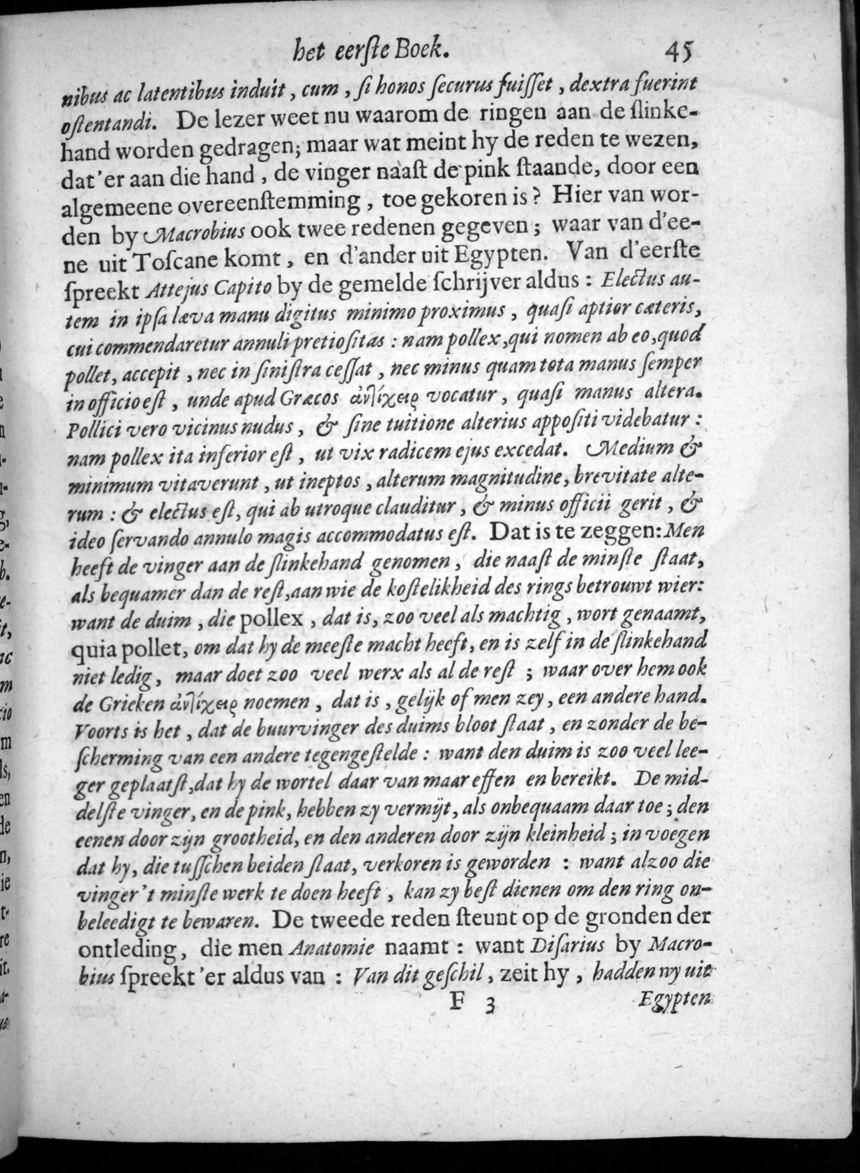 het eerſte Boek. 45
nibus ac latentibus induit, cum, ſi honos ſecurus fuiſſet, dextra fuerint
oſtentandi. De lezer weet nu waarom de ringen aan de ſlinke-
hand worden gedragen; maar wat meint hy de reden te wezen,
dat'er aan die hand, de vinger naaſt de pink ſtaande, door een
algemeene overeenſtemming, toe gekoren is? Hier van wor-
den by Macrobius ook twee redenen gegeven; waar van d'ee-
ne uit Toſcane komt, en d'ander uit Egypten. Van d'eerſte
ſpreekt Attejus Capito by de gemelde ſchrijver aldus: Electus au-
tem in ipſa læva manu digitus minimo proximus, quaſi aptior cæteris,
cui commendaretur annuli pretioſitas: nam pollex, qui nomen ab eo, quod
pollet, accepit, nec in ſiniſtra ceſſat, nec minus quam tota manus ſemper
in officio eſt, unde apud Græcos ἀντίχειρ vocatur, quaſi manus altera.
Pollici vero vicinus nudus, & ſine tuitione alterius appoſiti videbatur:
nam pollex ita inferior eſt, ut vix radicem ejus excedat. Medium &
minimum vitaverunt, ut ineptos, alterum magnitudine, brevitate alte-
rum: & electus eſt, qui ab utroque clauditur, & minus officii gerit, &
ideo ſervando annulo magis accommodatus eſt. Dat is te zeggen: Men
heeft de vinger aan de ſlinkehand genomen, die naaſt de minſte ſtaat,
als bequamer dan de reſt, aan wie de koſtelikheid des rings betrouwt wier:
want de duim, die pollex, dat is, zoo veel als machtig, wort genaamt,
quia pollet, om dat hy de meeſte macht heeft, en is zelf in de ſlinkehand
niet ledig, maar doet zoo veel werx als al de reſt; waar over hem ook
de Grieken ἀντίχειρ noemen, dat is, gelijk of men zey, een andere hand.
Voorts is het, dat de buurvinger des duims bloot ſtaat, en zonder de be-
ſcherming van een andere tegengeſtelde: want den duim is zoo veel lee-
ger geplaatſt, dat hy de wortel daar van maar effen en bereikt. De mid-
delſte vinger, en de pink, hebben zy vermijt, als onbequaam daar toe; den
eenen door zijn grootheid, en den anderen door zijn kleinheid; in voegen
dat hy, die tuſſchen beiden ſtaat, verkoren is geworden: want alzoo die
vinger 't minſte werk te doen heeft, kan zy beſt dienen om den ring on-
beleedigt te bewaren. De tweede reden ſteunt op de gronden der
ontleding, die men Anatomie naamt: want Diſarius by Macro-
bius ſpreekt'er aldus van: Van dit geſchil, zeit hy, hadden wy uit
F 3 Egypten